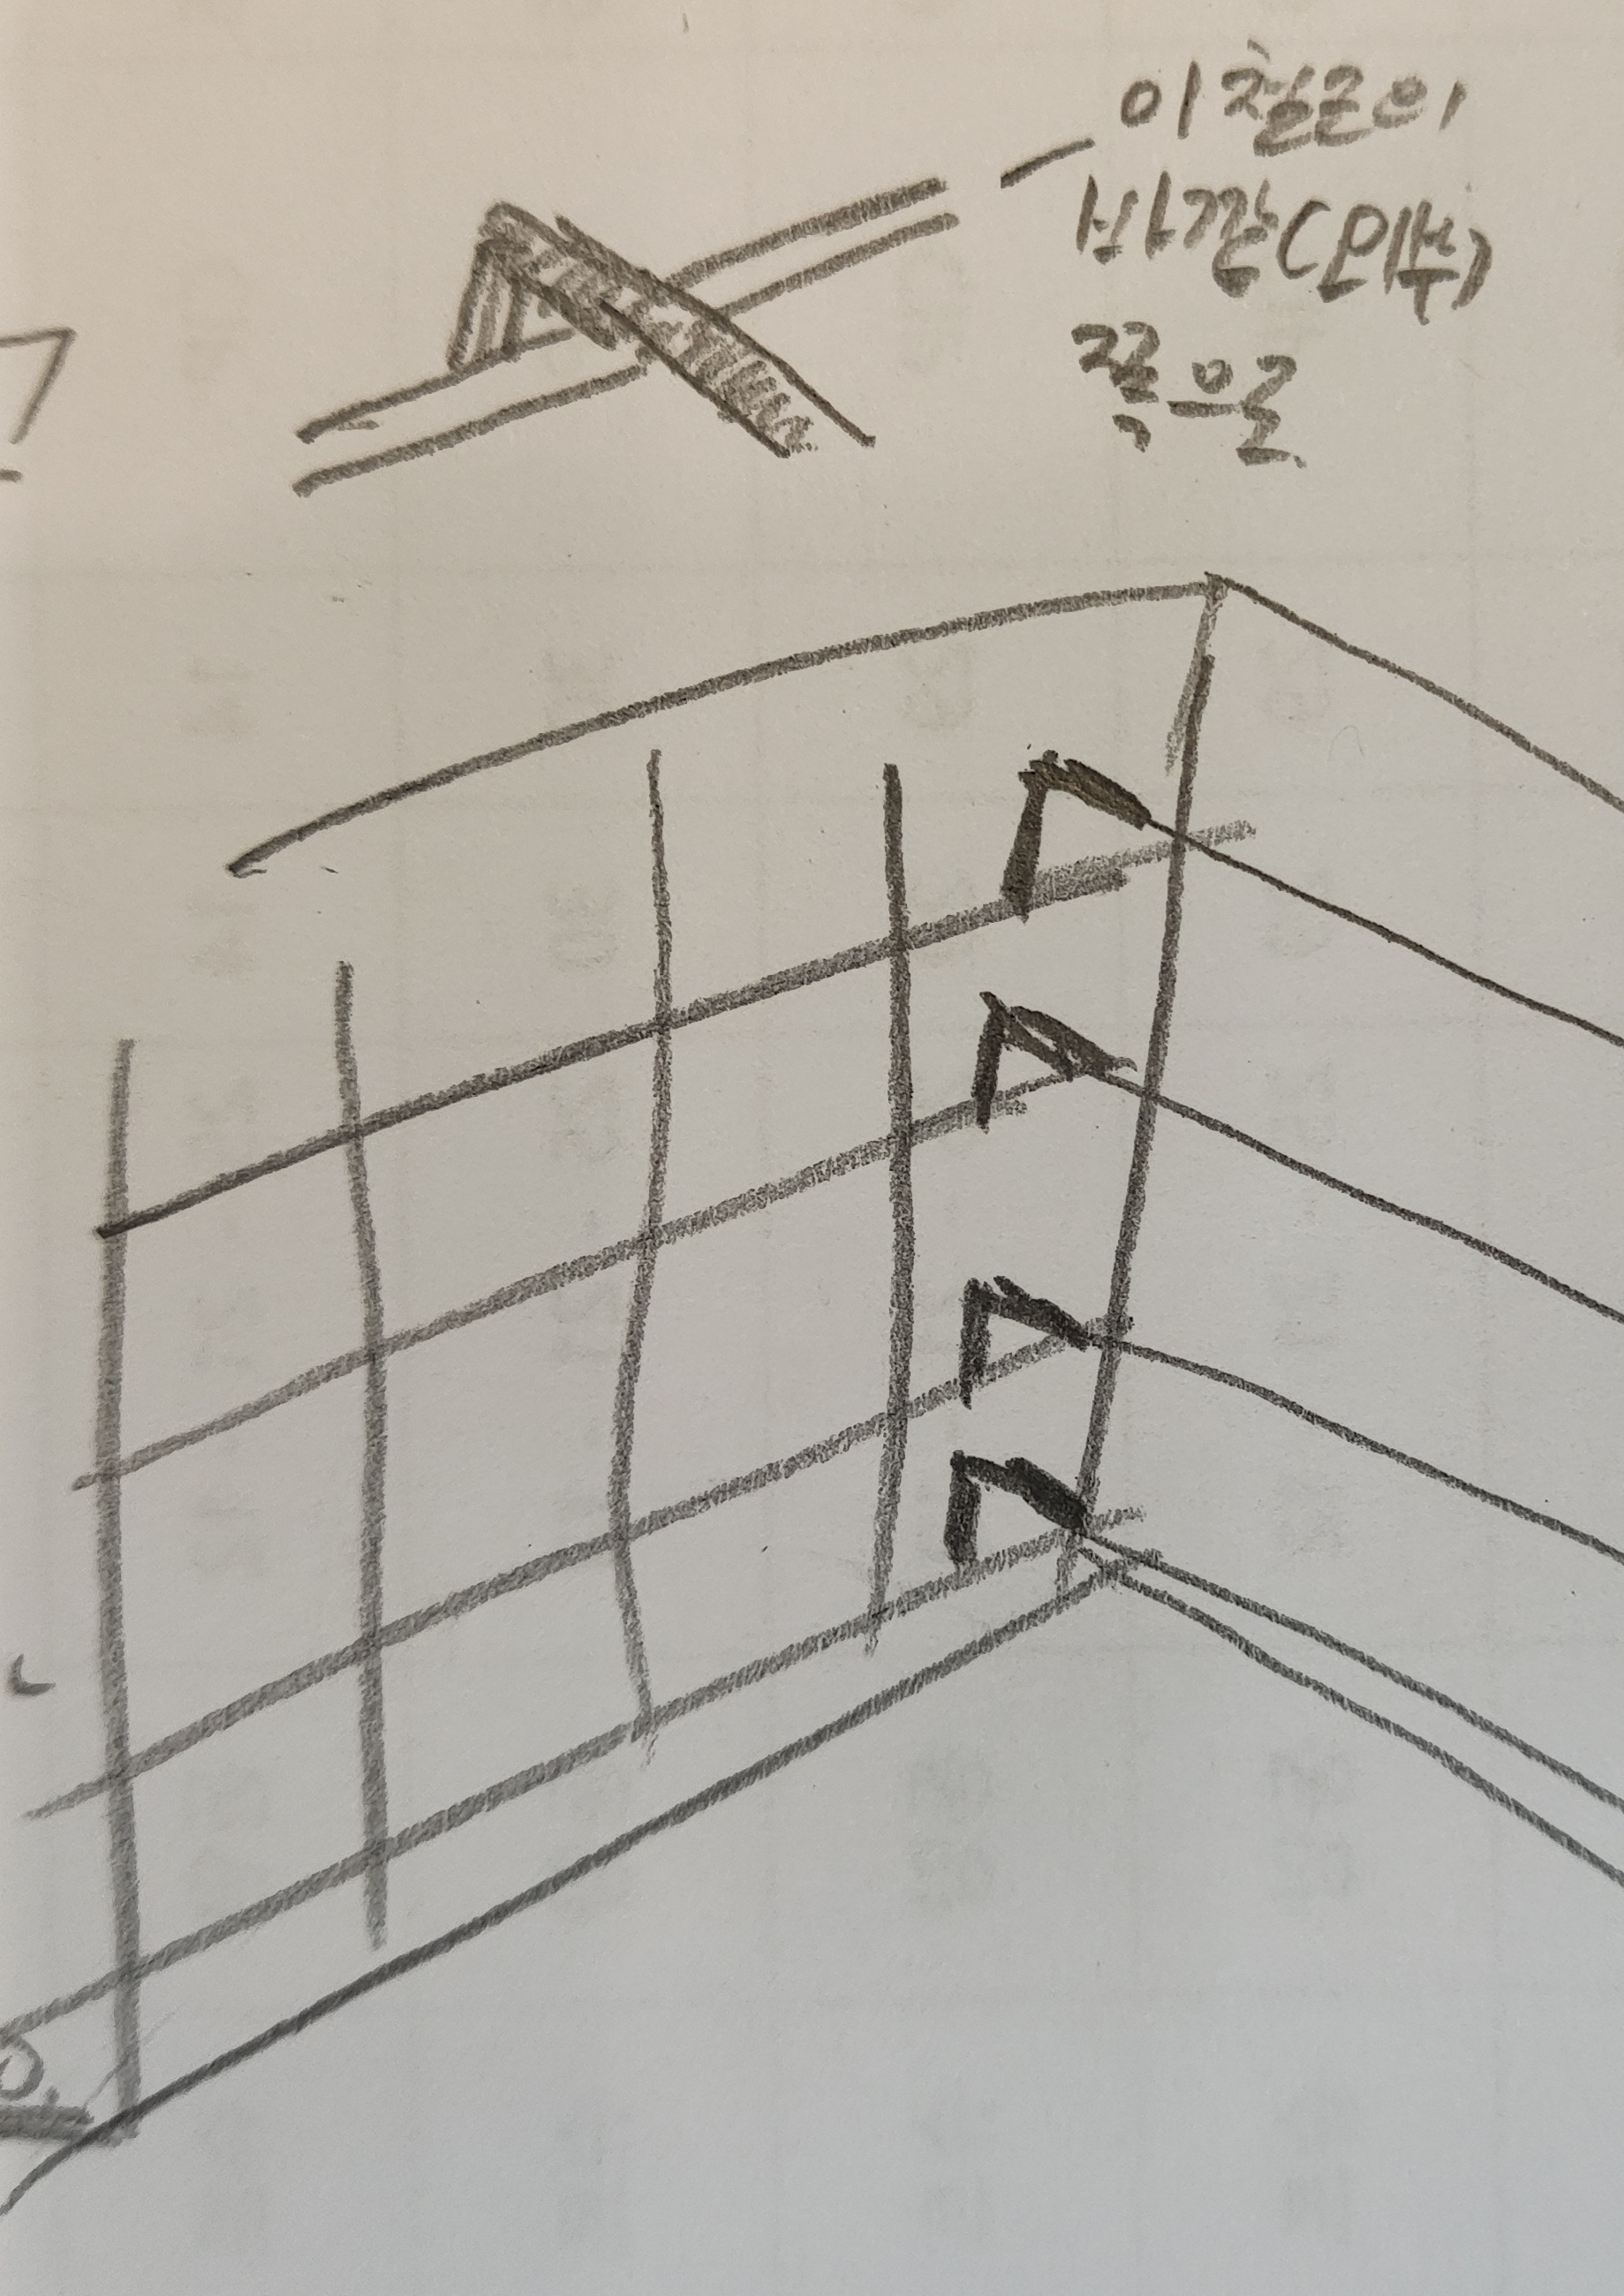 이 철근이
바깥(외부)
쪽으로.